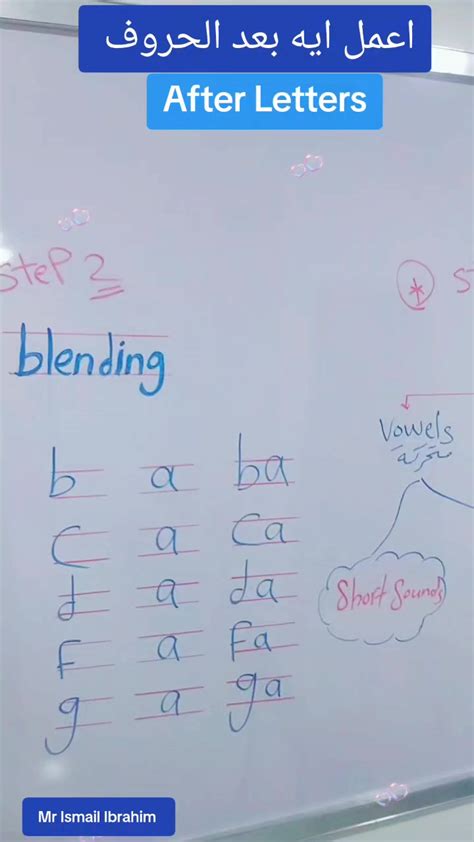 اعمل ايه بعد الحروف
After Letters
Step 2
blending
b a ba
c a ca
d a da
F a Fa
g a ga
Vowels
متحركة
Short Sounds
Mr Ismail Ibrahim